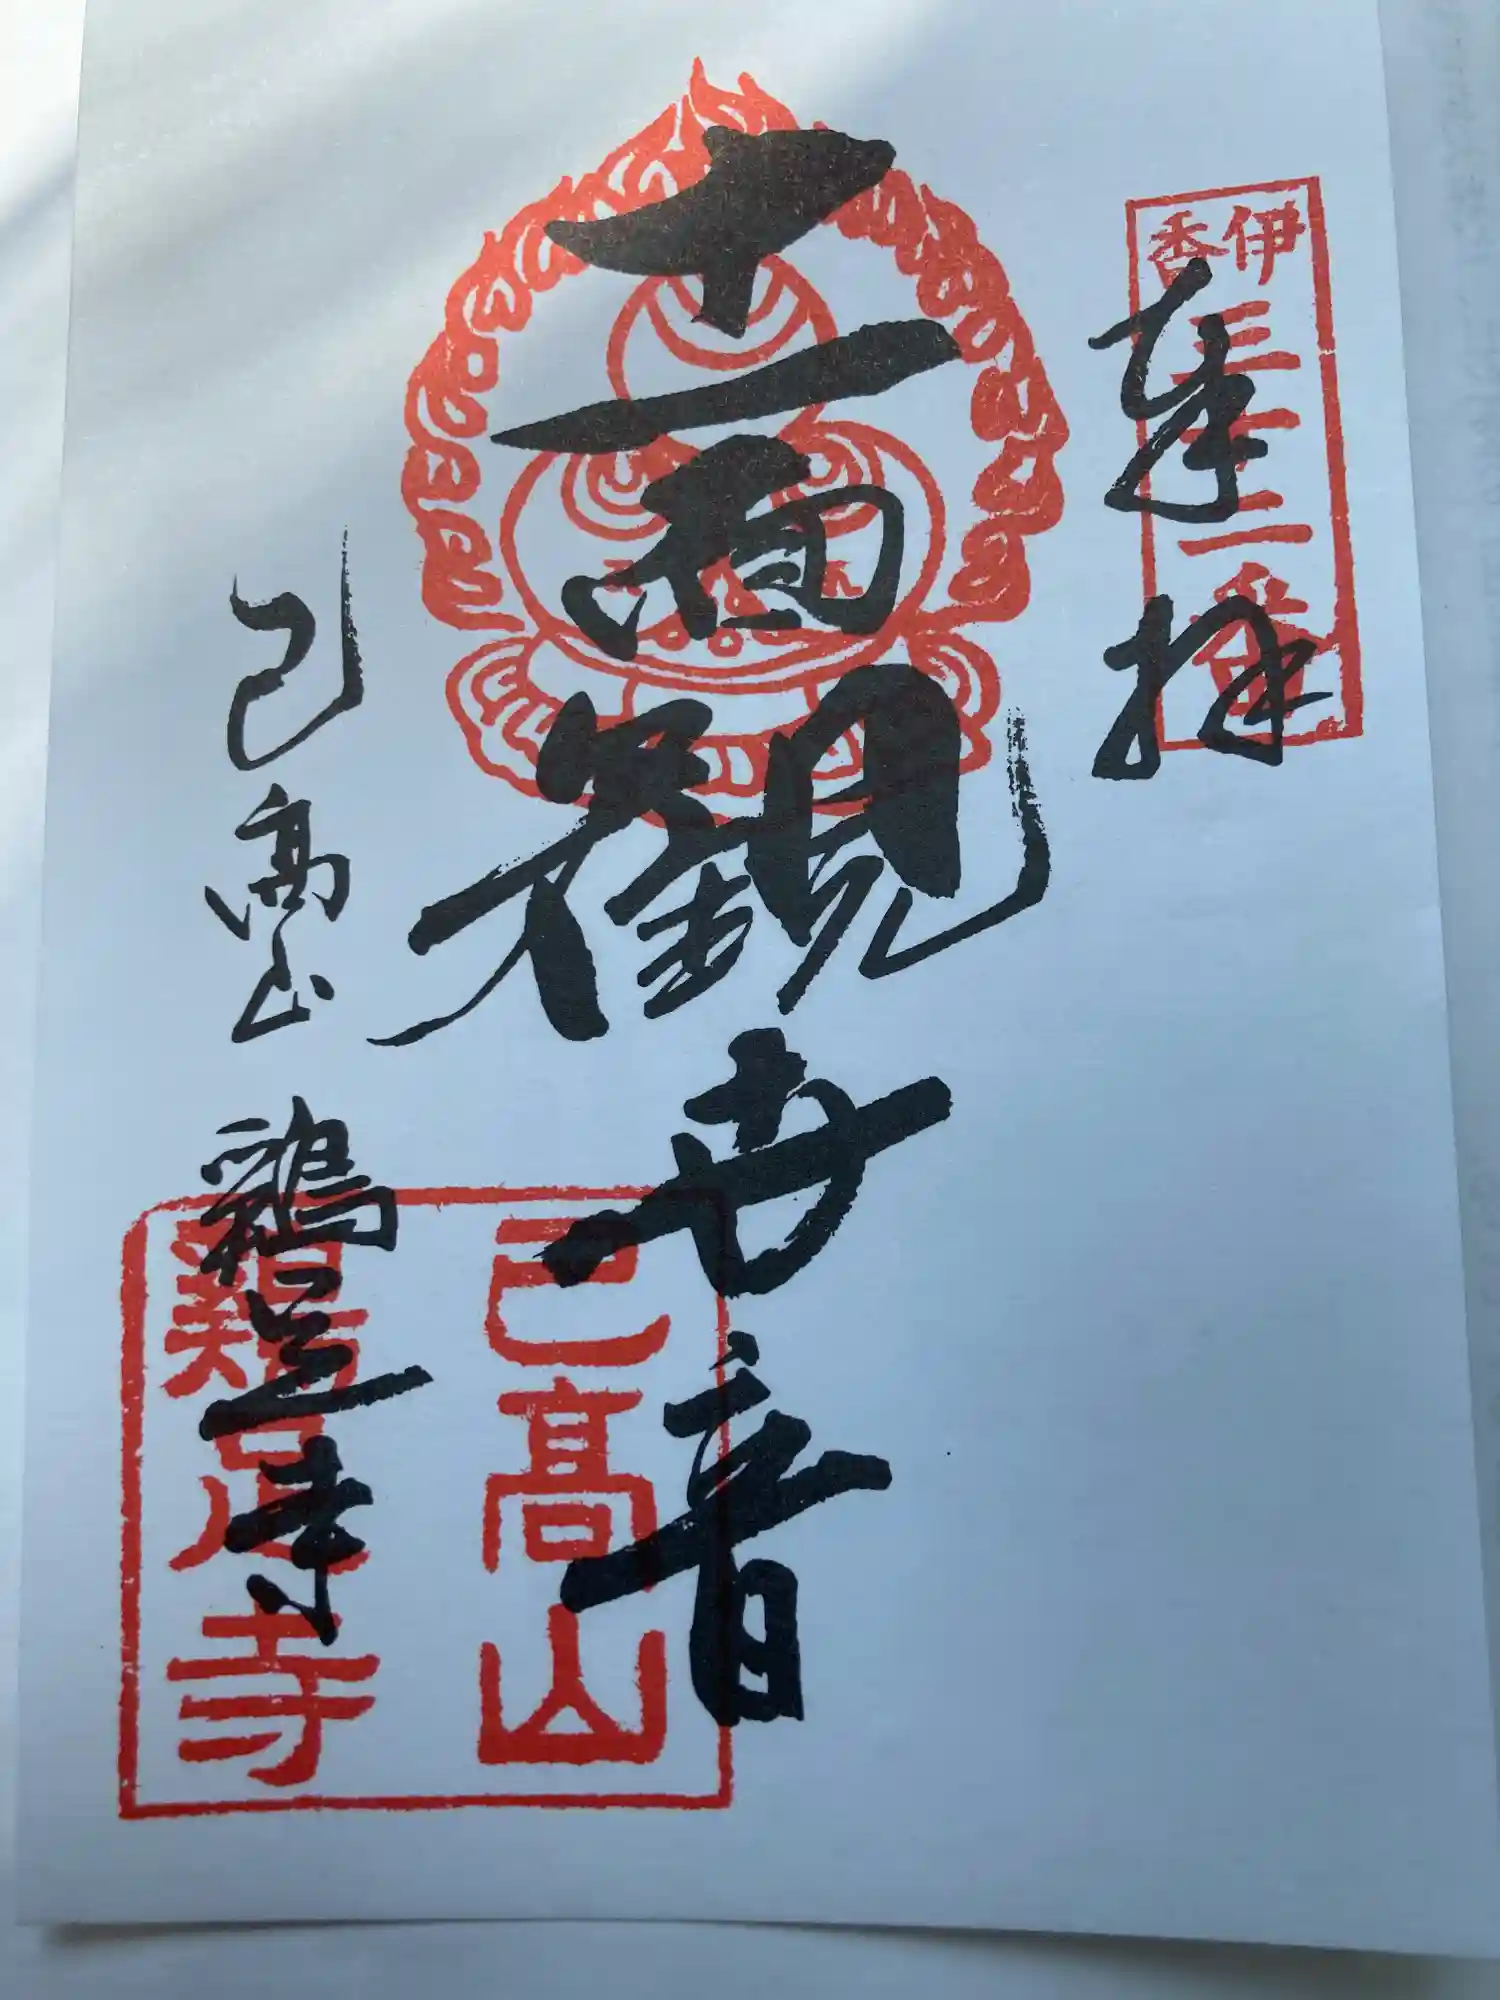 伊香三十三番
奉拝
十一面観世音
己高山 鶏足寺
己高山
鶏足寺